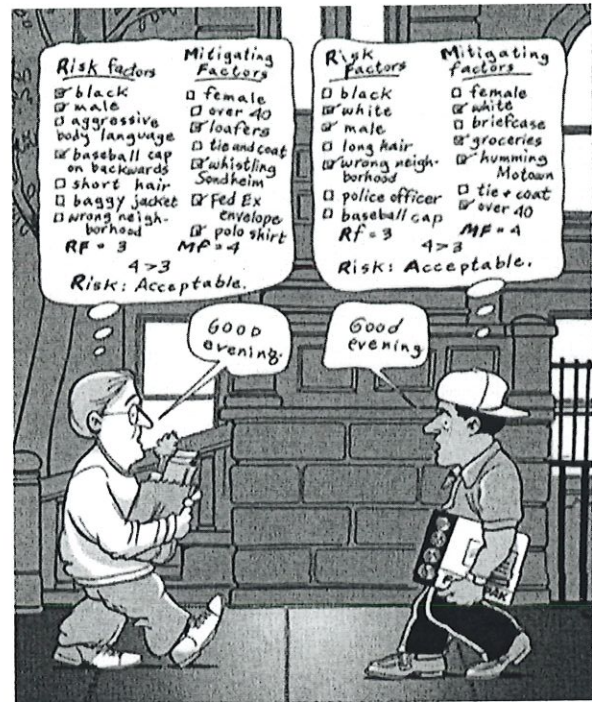 Risk factors
☑ black
☑ male
☐ aggressive
body language
☑ baseball cap
on backwards
☐ short hair
☐ baggy jacket
☐ wrong neigh-
borhood
RF = 3
Mitigating
Factors
☐ female
☐ over 40
☑ loafers
☐ tie and coat
☑ whistling
Sondheim
☑ Fed Ex
envelope
☑ polo shirt
MF = 4
4 > 3
Risk: Acceptable.
Risk
Factors
☐ black
☑ white
☑ male
☐ long hair
☑ wrong neigh-
borhood
☐ police officer
☐ baseball cap
RF = 3
Mitigating
factors
☐ female
☑ white
☐ briefcase
☑ groceries
☑ humming
Motown
☐ tie + coat
☑ over 40
MF = 4
4 > 3
Risk: Acceptable.
GOOD
evening.
Good
evening